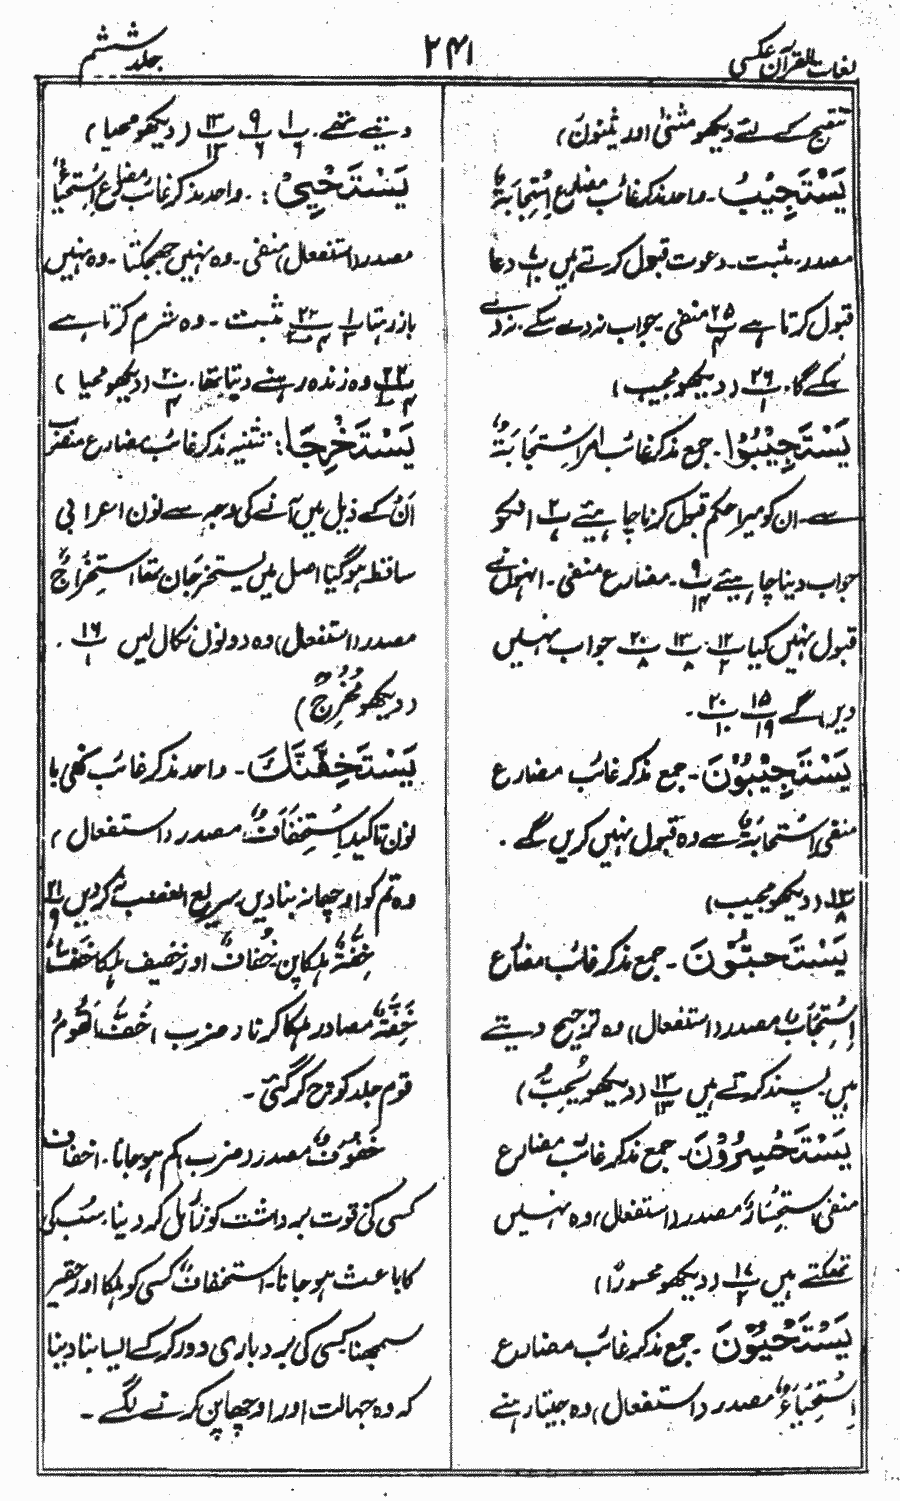 لغات القرآن عکسی
۲۴۱
جلد ششم
تنقیح کے لئے دیکھو مَثْنٰی اور یَثْنُوْنَ)
یَسْتَجِیْبُ۔ واحد مذکر غائب مضارع اِسْتِجَابَۃٌ
مصدر۔ مثبت۔ دعوت قبول کرتے ہیں دعا
قبول کرتا ہے ۲۵/۴ منفی۔ جواب نہ دے سکے۔ نہ دے
سکے گا۔ ۲۶/۱ (دیکھو مجیب)
یَسْتَجِیْبُوْا۔ جمع مذکر غائب امر اِسْتِجَابَۃٌ
سے۔ ان کو میرا حکم قبول کرنا چاہیئے ۲ ان کو
جواب دینا چاہیئے ۹/۱۴۔ مضارع منفی۔ انہوں نے
قبول نہیں کیا ۱۲/۲، ۱۳/۸، ۲۰/۸ جواب نہیں
دیں گے ۱۵/۱۹ ۲۰/۱۰۔
یَسْتَجِیْبُوْنَ۔ جمع مذکر غائب مضارع
منفی اِسْتِجَابَۃٌ سے وہ قبول نہیں کریں گے۔
۱۳/۸۔ (دیکھو مجیب)
یَسْتَحِبُّوْنَ۔ جمع مذکر غائب مضارع
اِسْتِحْبَابٌ مصدر (استفعال) وہ ترجیح دیتے
ہیں۔ پسند کرتے ہیں ۱۳/۱۳ (دیکھو یُحِبُّ)
یَسْتَحْسِرُوْنَ۔ جمع مذکر غائب مضارع
منفی اِسْتِحْسَارٌ مصدر (استفعال) وہ نہیں
تھکتے ہیں ۱۷/۲ (دیکھو محسورًا)
یَسْتَحْیُوْنَ۔ جمع مذکر غائب مضارع
اِسْتِحْیَاءٌ مصدر (استفعال) وہ جیتا رہنے
دیتے تھے۔ ۱/۶ ۹/۶ ۱۳/۱۳ (دیکھو محیا)
یَسْتَحْیِیْ: ۔ واحد مذکر غائب مضارع اِسْتِحْیَاءٌ
مصدر (استفعال) منفی۔ وہ نہیں جھجکتا۔ وہ نہیں
باز رہتا ۱/۳ ۲۲/۴ مثبت۔ وہ شرم کرتا ہے
۲۲/۴ وہ زندہ رہنے دیتا تھا۔ ۲۰/۴ (دیکھو محیا)
یَسْتَخْرِجَا: تثنیہ مذکر غائب مضارع منصوب
اَنْ کے ذیل میں آنے کی وجہ سے نون اعرابی
ساقط ہو گیا اصل میں یستخرجان تھا اِسْتِخْرَاجٌ
مصدر (استفعال) وہ دونوں نکال لیں ۱۶/۱۔
(دیکھو مُخْرِجٌ)
یَسْتَخِفَّنَّكَ۔ واحد مذکر غائب نہی با
نون تاکید اِسْتِخْفَافٌ مصدر (استفعال)
وہ تم کو اوچھا نہ بنا دیں۔ سریع الغضب نہ کر دیں ۲۱/۹
خِفَّۃٌ ہلکا پن خُفَافٌ اور خفیف ہلکا خَفٌّ
خَفَّۃٌ مصادر ہلکا کرنا (ضرب) اَخَفَّ الْقَوْمُ
قوم جلد کوچ کر گئی۔
خُفُوْفٌ مصدر (ضرب) کم ہو جانا۔ اخفاف
کسی کی قوت برداشت کو زائل کر دینا۔ سبب کی
کا باعث ہو جانا۔ استخفافٌ کسی کو ہلکا اور حقیر
سمجھنا کسی کی بردباری دور کر کے ایسا بنا دینا
کہ وہ جہالت اور اوچھا پن کرنے لگے۔